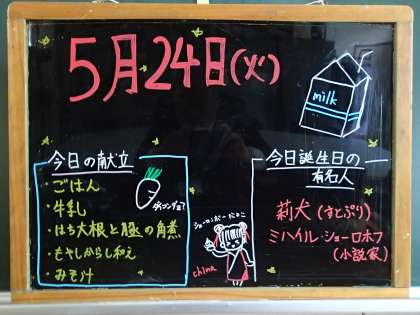 5月24日(火)
milk
今日の献立
・ごはん
・牛乳
・はち大根と豚の角煮
・もやしからし和え
・みそ汁
china
今日誕生日の
有名人
莉犬(すとぷり)
ミハイル・ショーロホフ
(小説家)